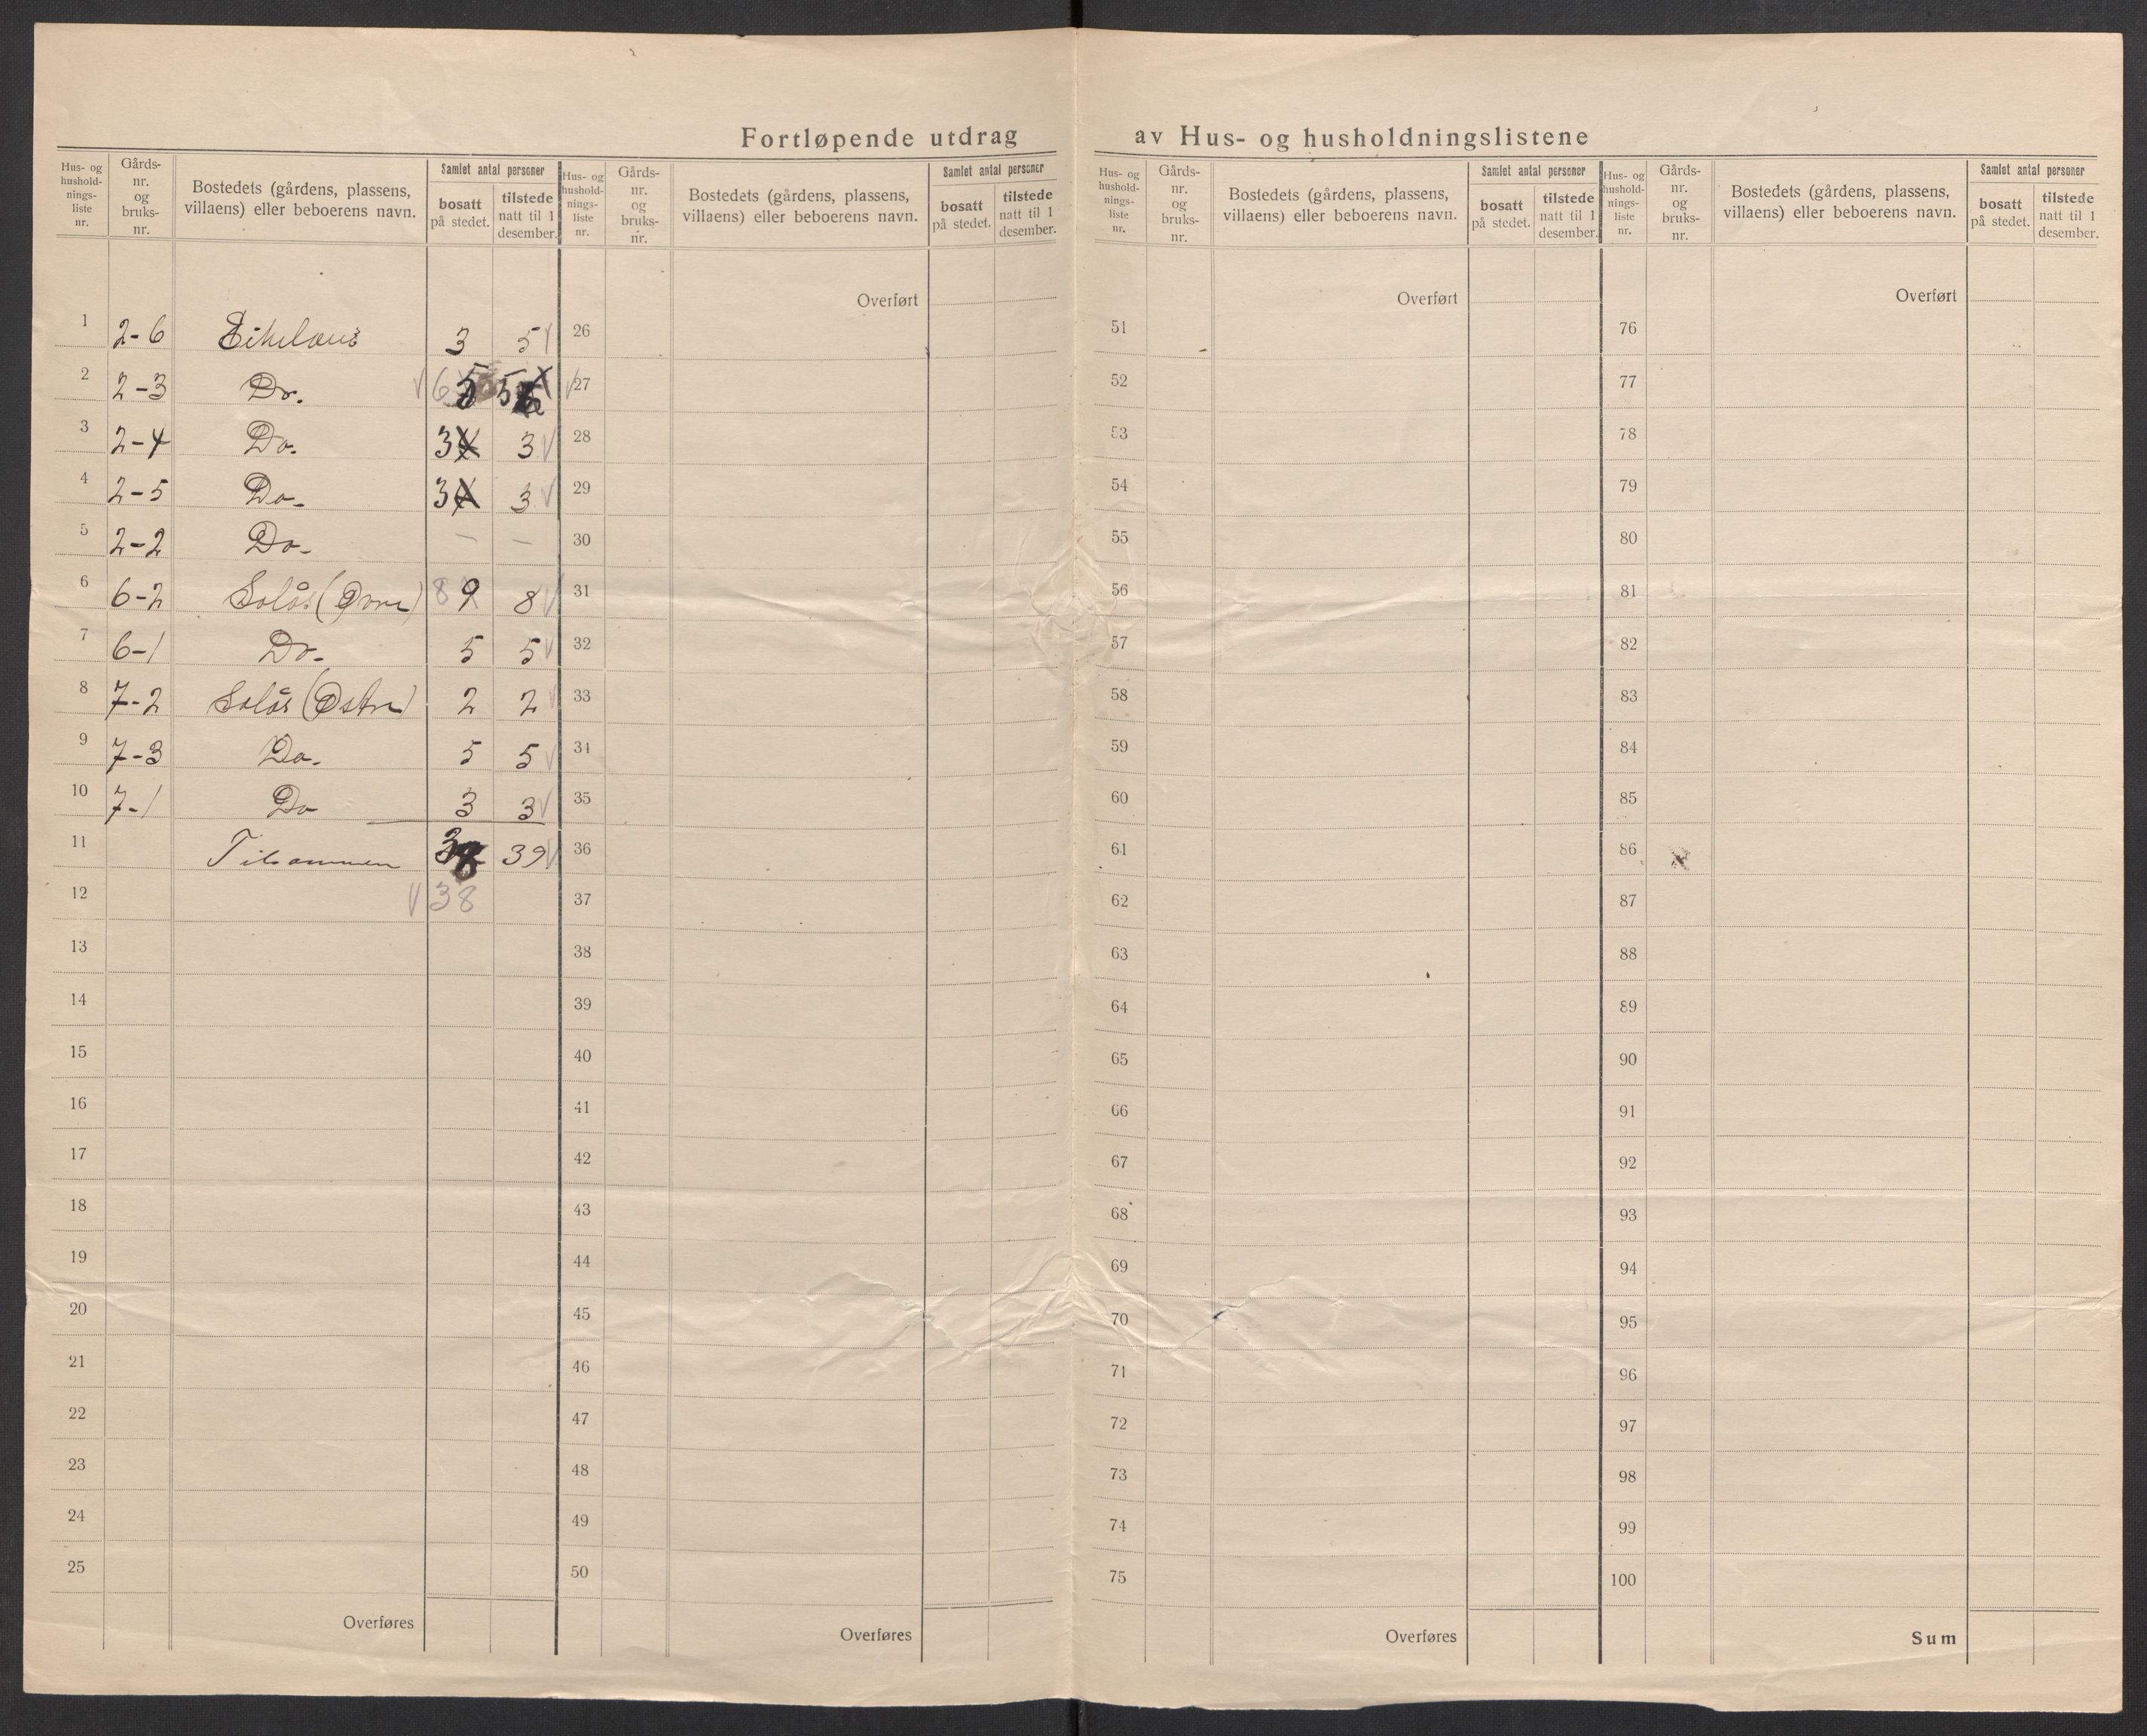 Fortløpende utdrag av Hus- og husholdningslistene
Hus- og hushold- nings- liste nr. | Gårds- nr. og bruks- nr. | Bostedets (gårdens, plassens, villaens) eller beboerens navn. | Samlet antal personer | bosatt på stedet. | tilstede natt til 1 desember.
Hus- og hushold- nings- liste nr. | Gårds- nr. og bruks- nr. | Bostedets (gårdens, plassens, villaens) eller beboerens navn. | Samlet antal personer | bosatt på stedet. | tilstede natt til 1 desember.
Hus- og hushold- nings- liste nr. | Gårds- nr. og bruks- nr. | Bostedets (gårdens, plassens, villaens) eller beboerens navn. | Samlet antal personer | bosatt på stedet. | tilstede natt til 1 desember.
Hus- og hushold- nings- liste nr. | Gårds- nr. og bruks- nr. | Bostedets (gårdens, plassens, villaens) eller beboerens navn. | Samlet antal personer | bosatt på stedet. | tilstede natt til 1 desember.
1 2-6 Eikeland 3 5
2 2-3 Do. 6 5 5
3 2-4 Do. 3 3
4 2-5 Do- 3 3
5 2-2 Do- – –
6 6-2 Solås (Øvre) 8 9 8
7 6-1 Do- 5 5
8 7-2 Solås (Østre) 2 2
9 7-3 Do. 5 5
10 7-1 Do 3 3
11 Tilsammen 38 39
12 38
13
14
15
16
17
18
19
20
21
22
23
24
25
Overføres
Overført
26
27
28
29
30
31
32
33
34
35
36
37
38
39
40
41
42
43
44
45
46
47
48
49
50
Overføres
Overført
51
52
53
54
55
56
57
58
59
60
61
62
63
64
65
66
67
68
69
70
71
72
73
74
75
Overføres
Overført
76
77
78
79
80
81
82
83
84
85
86
87
88
89
90
91
92
93
94
95
96
97
98
99
100
Sum